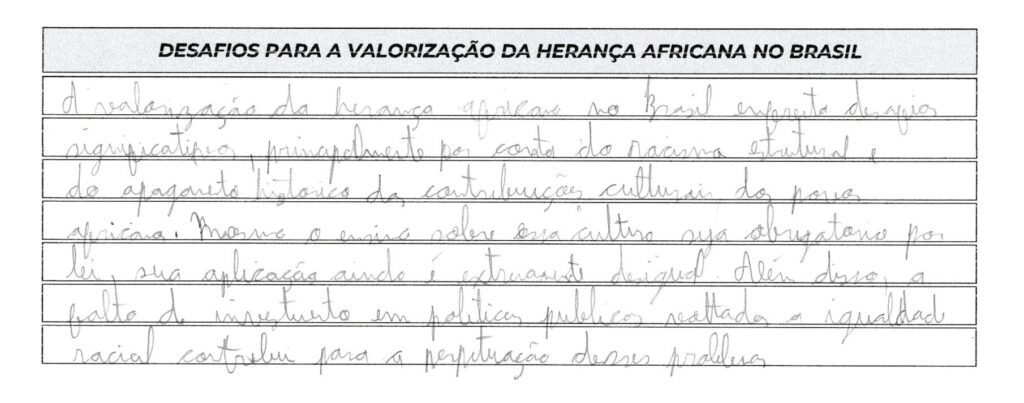 DESAFIOS PARA A VALORIZAÇÃO DA HERANÇA AFRICANA NO BRASIL
A valorização da herança africana no Brasil enfrenta desafios
significativos, principalmente por conta do racismo estrutural e
do apagamento histórico das contribuições culturais dos povos
africanos. Mesmo o ensino sobre essa cultura seja obrigatório por
lei, sua aplicação ainda é extremamente desigual. Além disso, a
falta de investimento em políticas públicas voltadas a igualdade
racial contribui para a perpetuação desses problemas